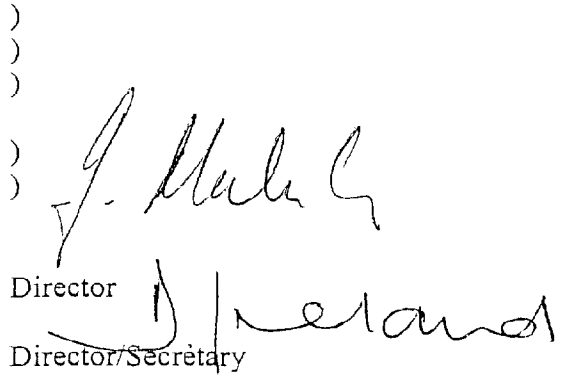 )
)
)
)
)
J.
Director
D Ireland
Director/Secretary